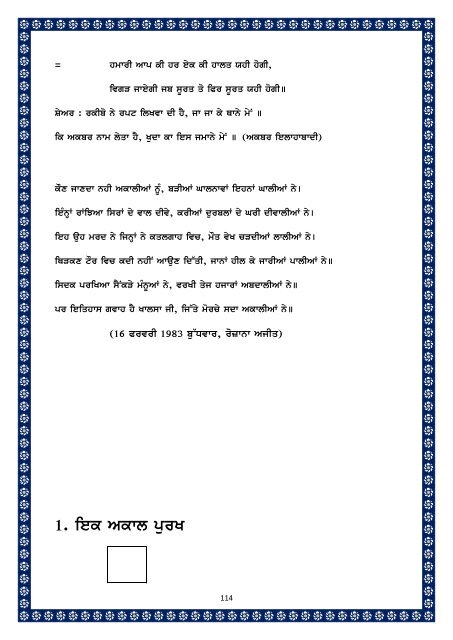 =	ਹਮਾਰੀ ਆਪ ਕੀ ਹਰ ਏਕ ਕੀ ਹਾਲਤ ਯਹੀ ਹੋਗੀ,
ਵਿਗੜ ਜਾਏਗੀ ਜਬ ਸੂਰਤ ਤੋ ਫਿਰ ਸੂਰਤ ਯਹੀ ਹੋਗੀ॥
ਸ਼ੇਅਰ : ਰਕੀਬੋ ਨੇ ਰਪਟ ਲਿਖਵਾ ਦੀ ਹੈ, ਜਾ ਜਾ ਕੇ ਥਾਨੇ ਮੇਂ ॥
ਕਿ ਅਕਬਰ ਨਾਮ ਲੇਤਾ ਹੈ, ਖੁਦਾ ਕਾ ਇਸ ਜਮਾਨੇ ਮੇਂ ॥ (ਅਕਬਰ ਇਲਾਹਾਬਾਦੀ)
ਕੌਣ ਜਾਣਦਾ ਨਹੀ ਅਕਾਲੀਆਂ ਨੂੰ, ਬੜੀਆਂ ਘਾਲਨਾਵਾਂ ਇਹਨਾਂ ਘਾਲੀਆਂ ਨੇ।
ਇੰਨ੍ਹਾਂ ਰਾਂਝਿਆ ਸਿਰਾਂ ਦੇ ਵਾਲ ਦੀਵੇ, ਕਰੀਆਂ ਦੁਰਬਲਾਂ ਦੇ ਘਰੀ ਦੀਵਾਲੀਆਂ ਨੇ।
ਇਹ ਉਹ ਮਰਦ ਨੇ ਜਿਨ੍ਹਾਂ ਨੇ ਕਤਲਗਾਹ ਵਿਚ, ਮੌਤ ਵੇਖ ਚੜਦੀਆਂ ਲਾਲੀਆਂ ਨੇ।
ਥਿੜਕਣ ਟੌਰ ਵਿਚ ਕਦੀ ਨਹੀਂ ਆਉਣ ਦਿੱਤੀ, ਜਾਨਾਂ ਹੀਲ ਕੇ ਜਾਰੀਆਂ ਪਾਲੀਆਂ ਨੇ॥
ਸਿਦਕ ਪਰਖਿਆ ਸੈਂਕੜੇ ਮੰਨੂਆਂ ਨੇ, ਵਰਖੀ ਤੇਜ ਹਜਾਰਾਂ ਅਬਦਾਲੀਆਂ ਨੇ॥
ਪਰ ਇਤਿਹਾਸ ਗਵਾਹ ਹੈ ਖਾਲਸਾ ਜੀ, ਜਿੱਤੇ ਮੋਰਚੇ ਸਦਾ ਅਕਾਲੀਆਂ ਨੇ॥
(16 ਫਰਵਰੀ 1983 ਬੁੱਧਵਾਰ, ਰੋਜ਼ਾਨਾ ਅਜੀਤ)
1. ਇਕ ਅਕਾਲ ਪੁਰਖ
114